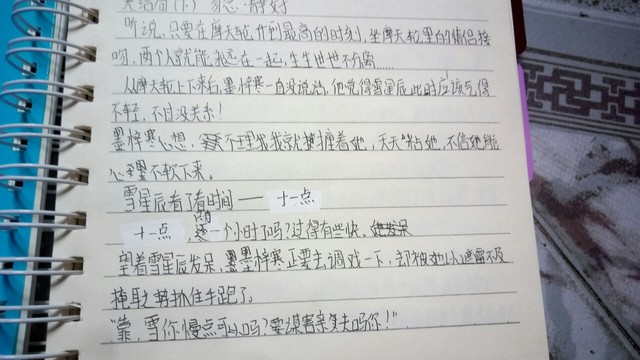 大结局(下) 勿忘·静好
听说,只要在摩天轮升到最高的时刻,坐摩天轮里的情侣接
吻,两个人就能永远在一起,生生世世不分离……
从摩天轮上下来后,墨梓寒一直没说话,他觉得雪星辰此时应该气得
不轻,不过没关系!
墨梓寒心想,不理我我就缠着她,天天粘她,不信她能
心不软下来。
雪星辰看了看时间——十一点
十一点,只有一个小时了吗?过得有些快。
望着雪星辰发呆,墨梓寒正要去调戏一下,却被她以迅雷不及
掩耳之势抓住手跑了。
“靠,雪你慢点可以吗?要谋害亲夫吗你!”